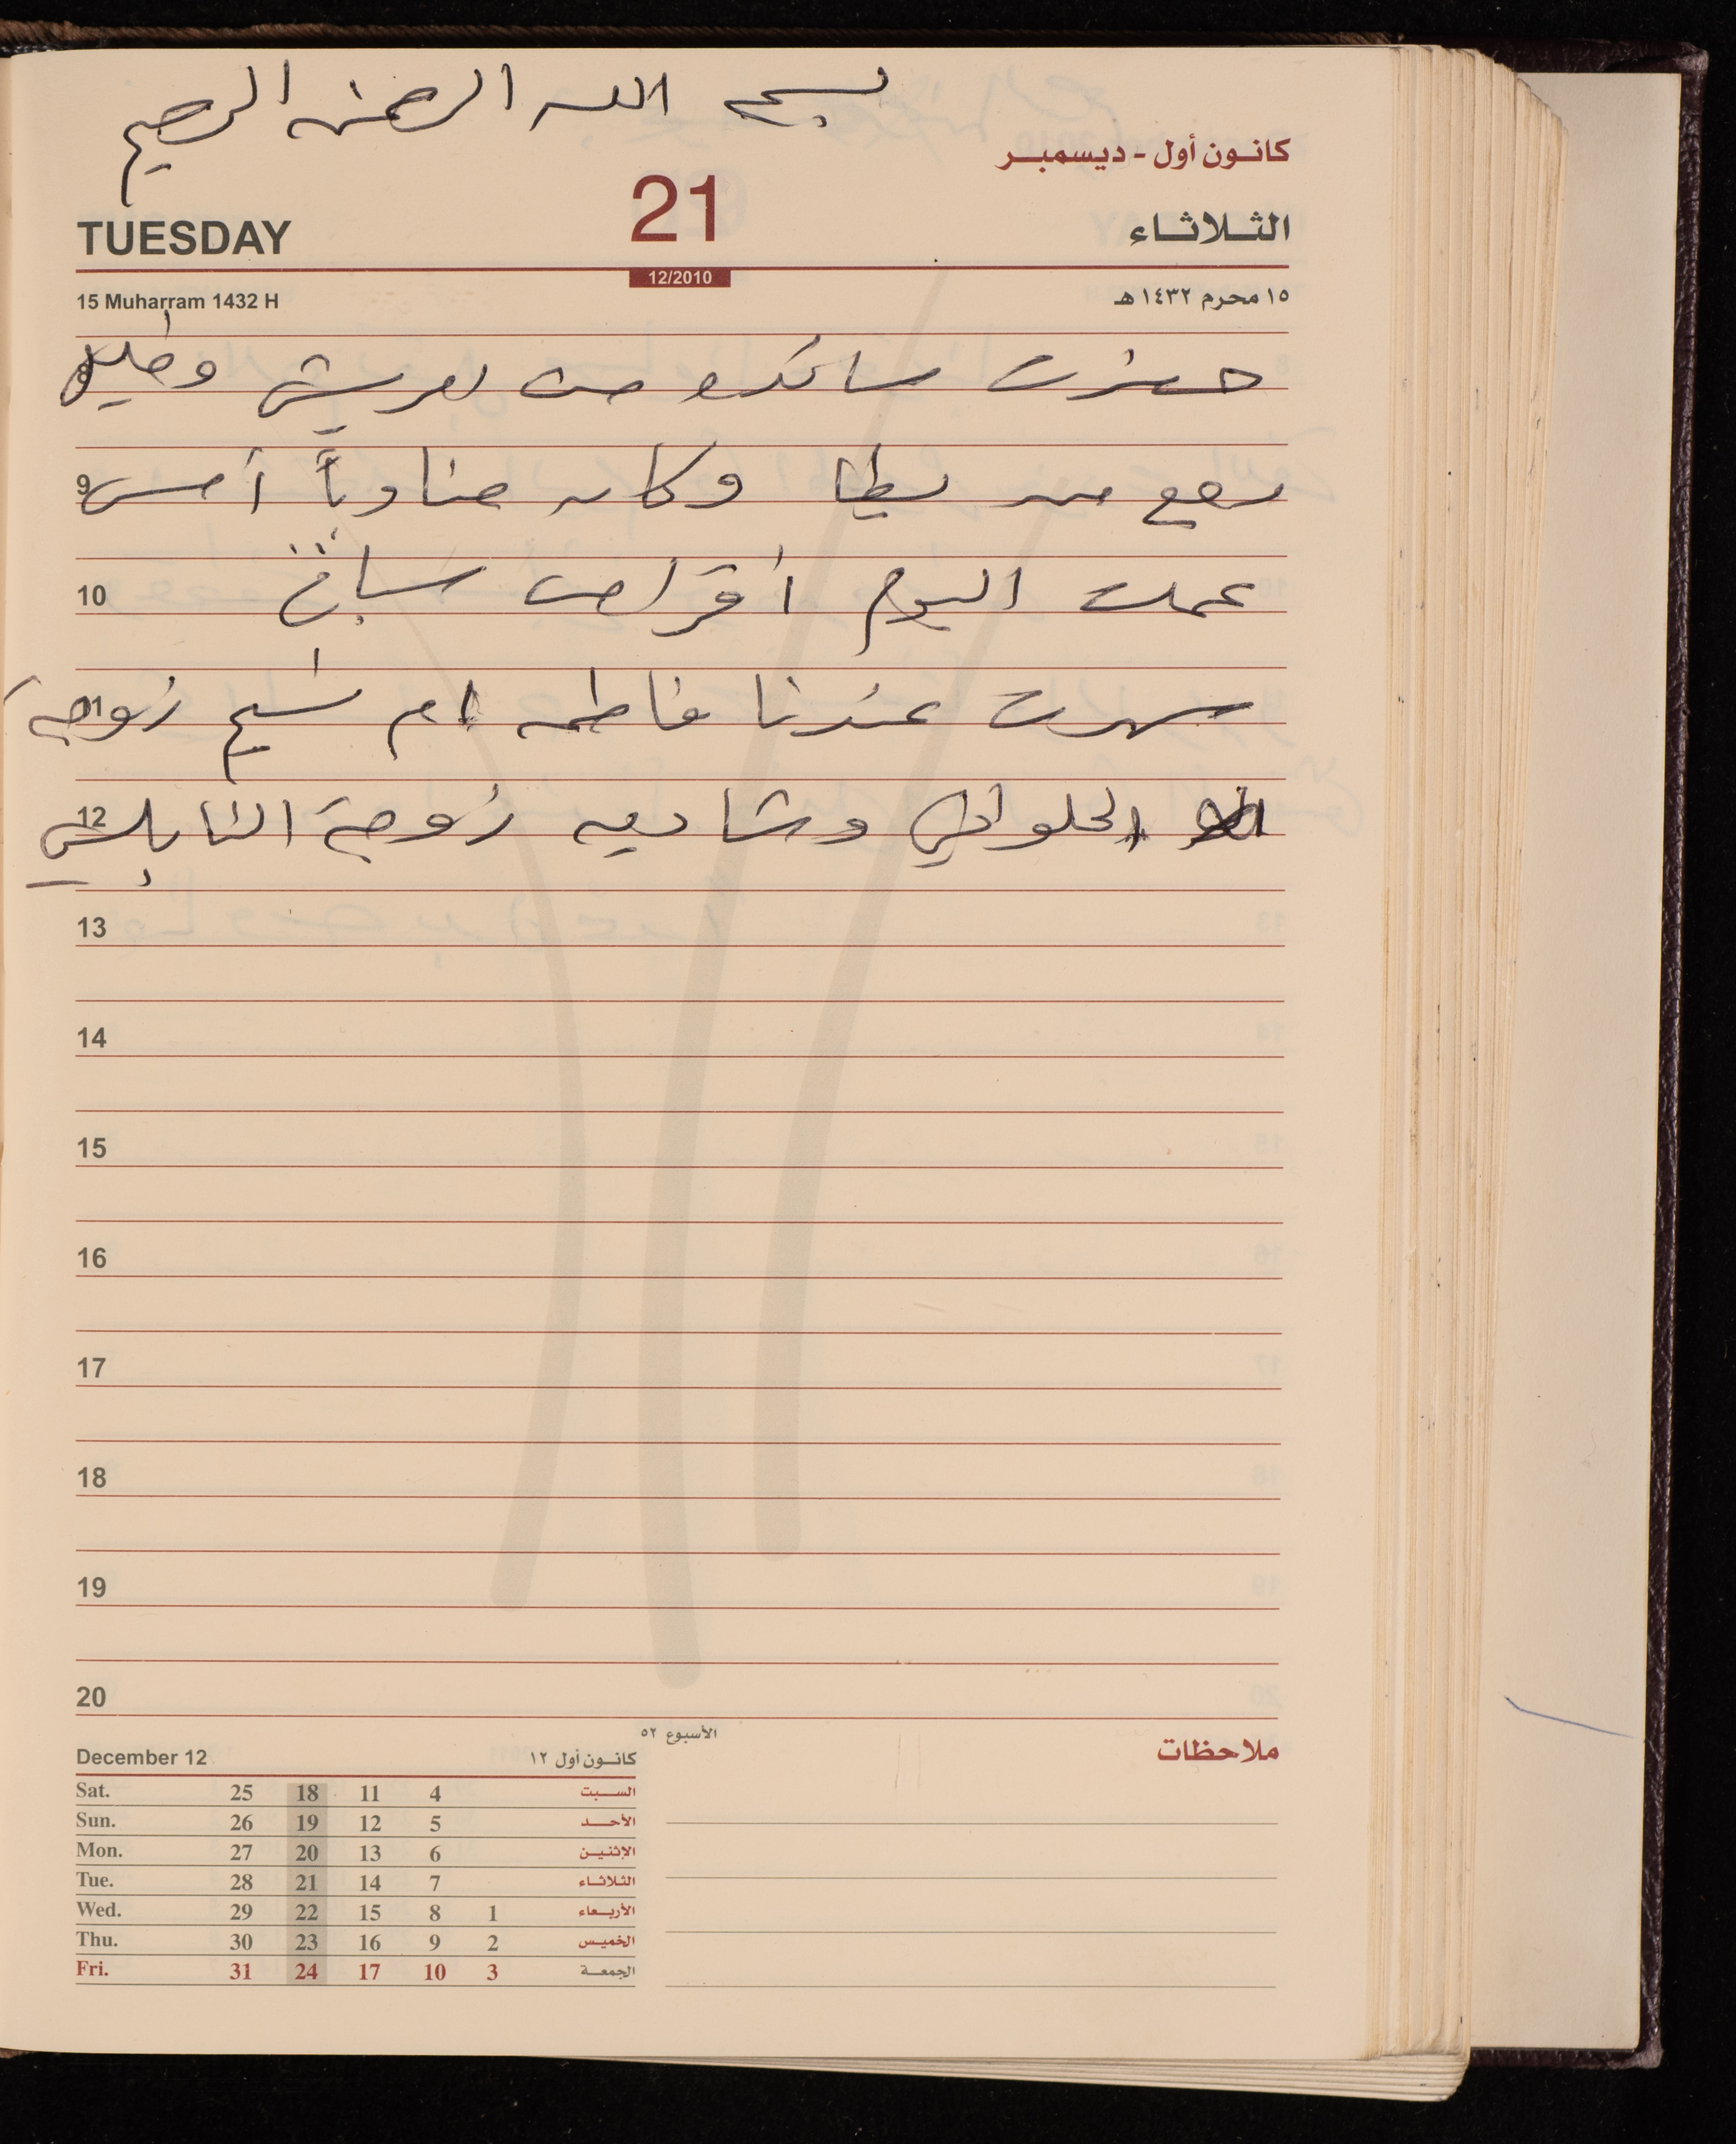 بسم الله الرحمن الرحيم
كانون أول - ديسمبر
TUESDAY 21 الثلاثاء
12/2010
15 Muharram 1432 H ١٥ محرم ١٤٣٢ هـ
حضرت ساندو من لعريش وخليل
رجع من يطا وكان مناوباً أمس
9
عملت اليوم أقراص سبانخ
10
سهرت عندنا فاطمه ام شيح زوجة
11
الحلواني وشاديه زوجة النابلسي
12
13
14
15
16
17
18
19
20
الأسبوع ٥٢
ملاحظات
December 12 كانون أول ١٢
Sat. 25 18 11 4 السبت
Sun. 26 19 12 5 الأحد
Mon. 27 20 13 6 الإثنين
Tue. 28 21 14 7 الثلاثاء
Wed. 29 22 15 8 1 الأربعاء
Thu. 30 23 16 9 2 الخميس
Fri. 31 24 17 10 3 الجمعة